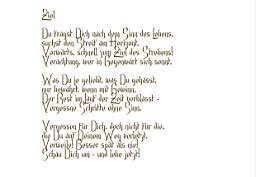 Ziel
Du fragst Dich nach dem Sinn des Lebens,
suchst den Streif am Horizont.
Vorwärts, schnell zum Ziel des Strebens!
Verachtung, wer in Gegenwart sich sonnt.
Was Du je geliebt, was Du gehasst,
nur bewahrt, wenn mit Gewinn.
Der Rest im Lauf der Zeit verblasst -
Vergessne Schritte ohne Sinn.
Vergessen für Dich, doch nicht für die,
die Du auf Deinem Weg verletzt.
Verweile! Besser spät als nie!
Schau Dich um - und lebe jetzt!